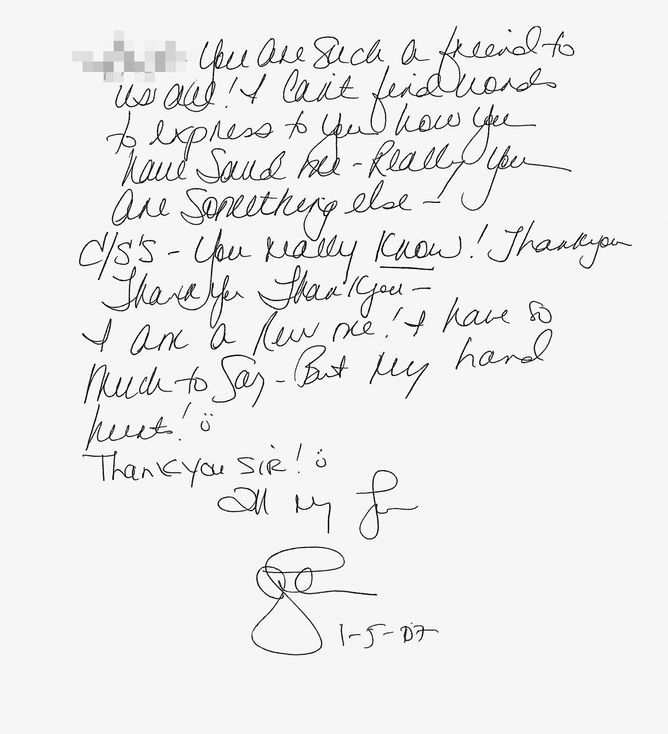 You are Such a friend to
us all! I Can't find words
to express to you how you
have Saved me - Really you
are Something else -
C/S'S - You really Know! Thankyou
Thank You Thankyou -
I am a new me! I have so
much to Say - But my hand
hurts! :)
Thankyou SIR! :)
All my Love
1-5-07